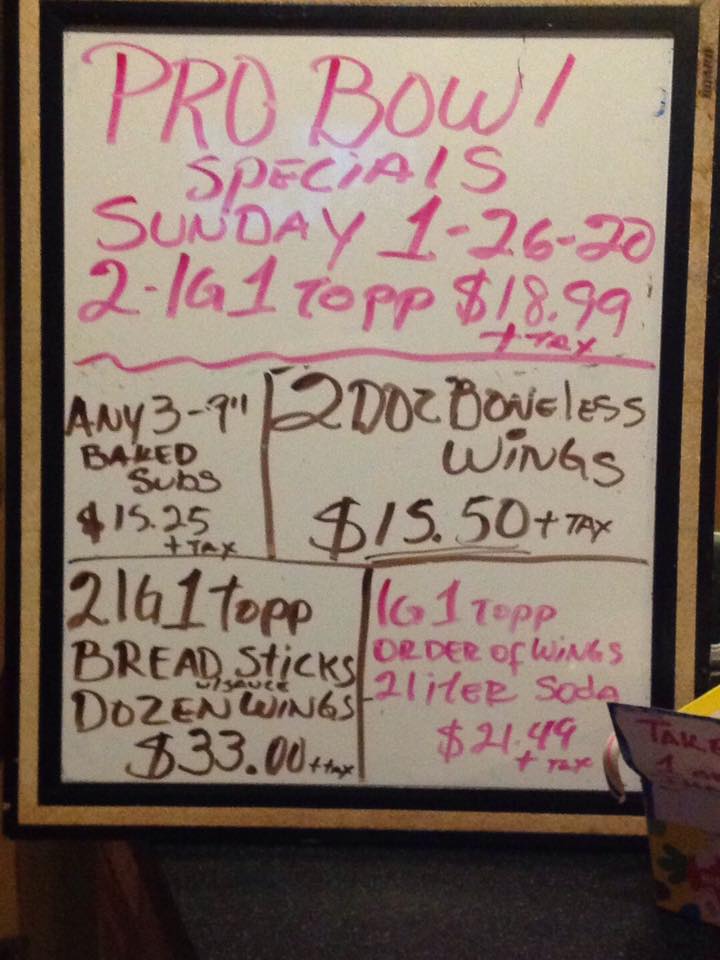 PRO BOWl
SPECiAlS
SUNDAY 1-26-20
2-lG 1 TOPP $18.99
+ TAX
ANY 3-9"
BAKED
SUBS
$15.25
+ TAX
2 DOZ BONElESS
WiNGS
$15.50 + TAX
2 lG 1 topp
BREAD SticKS
w/SAUCE
DOZEN WiNGS
$33.00 + tax
lG 1 TOPP
ORDER OF WiNGS
2 liter Soda
$21.49
+ TAX
TAKE
1